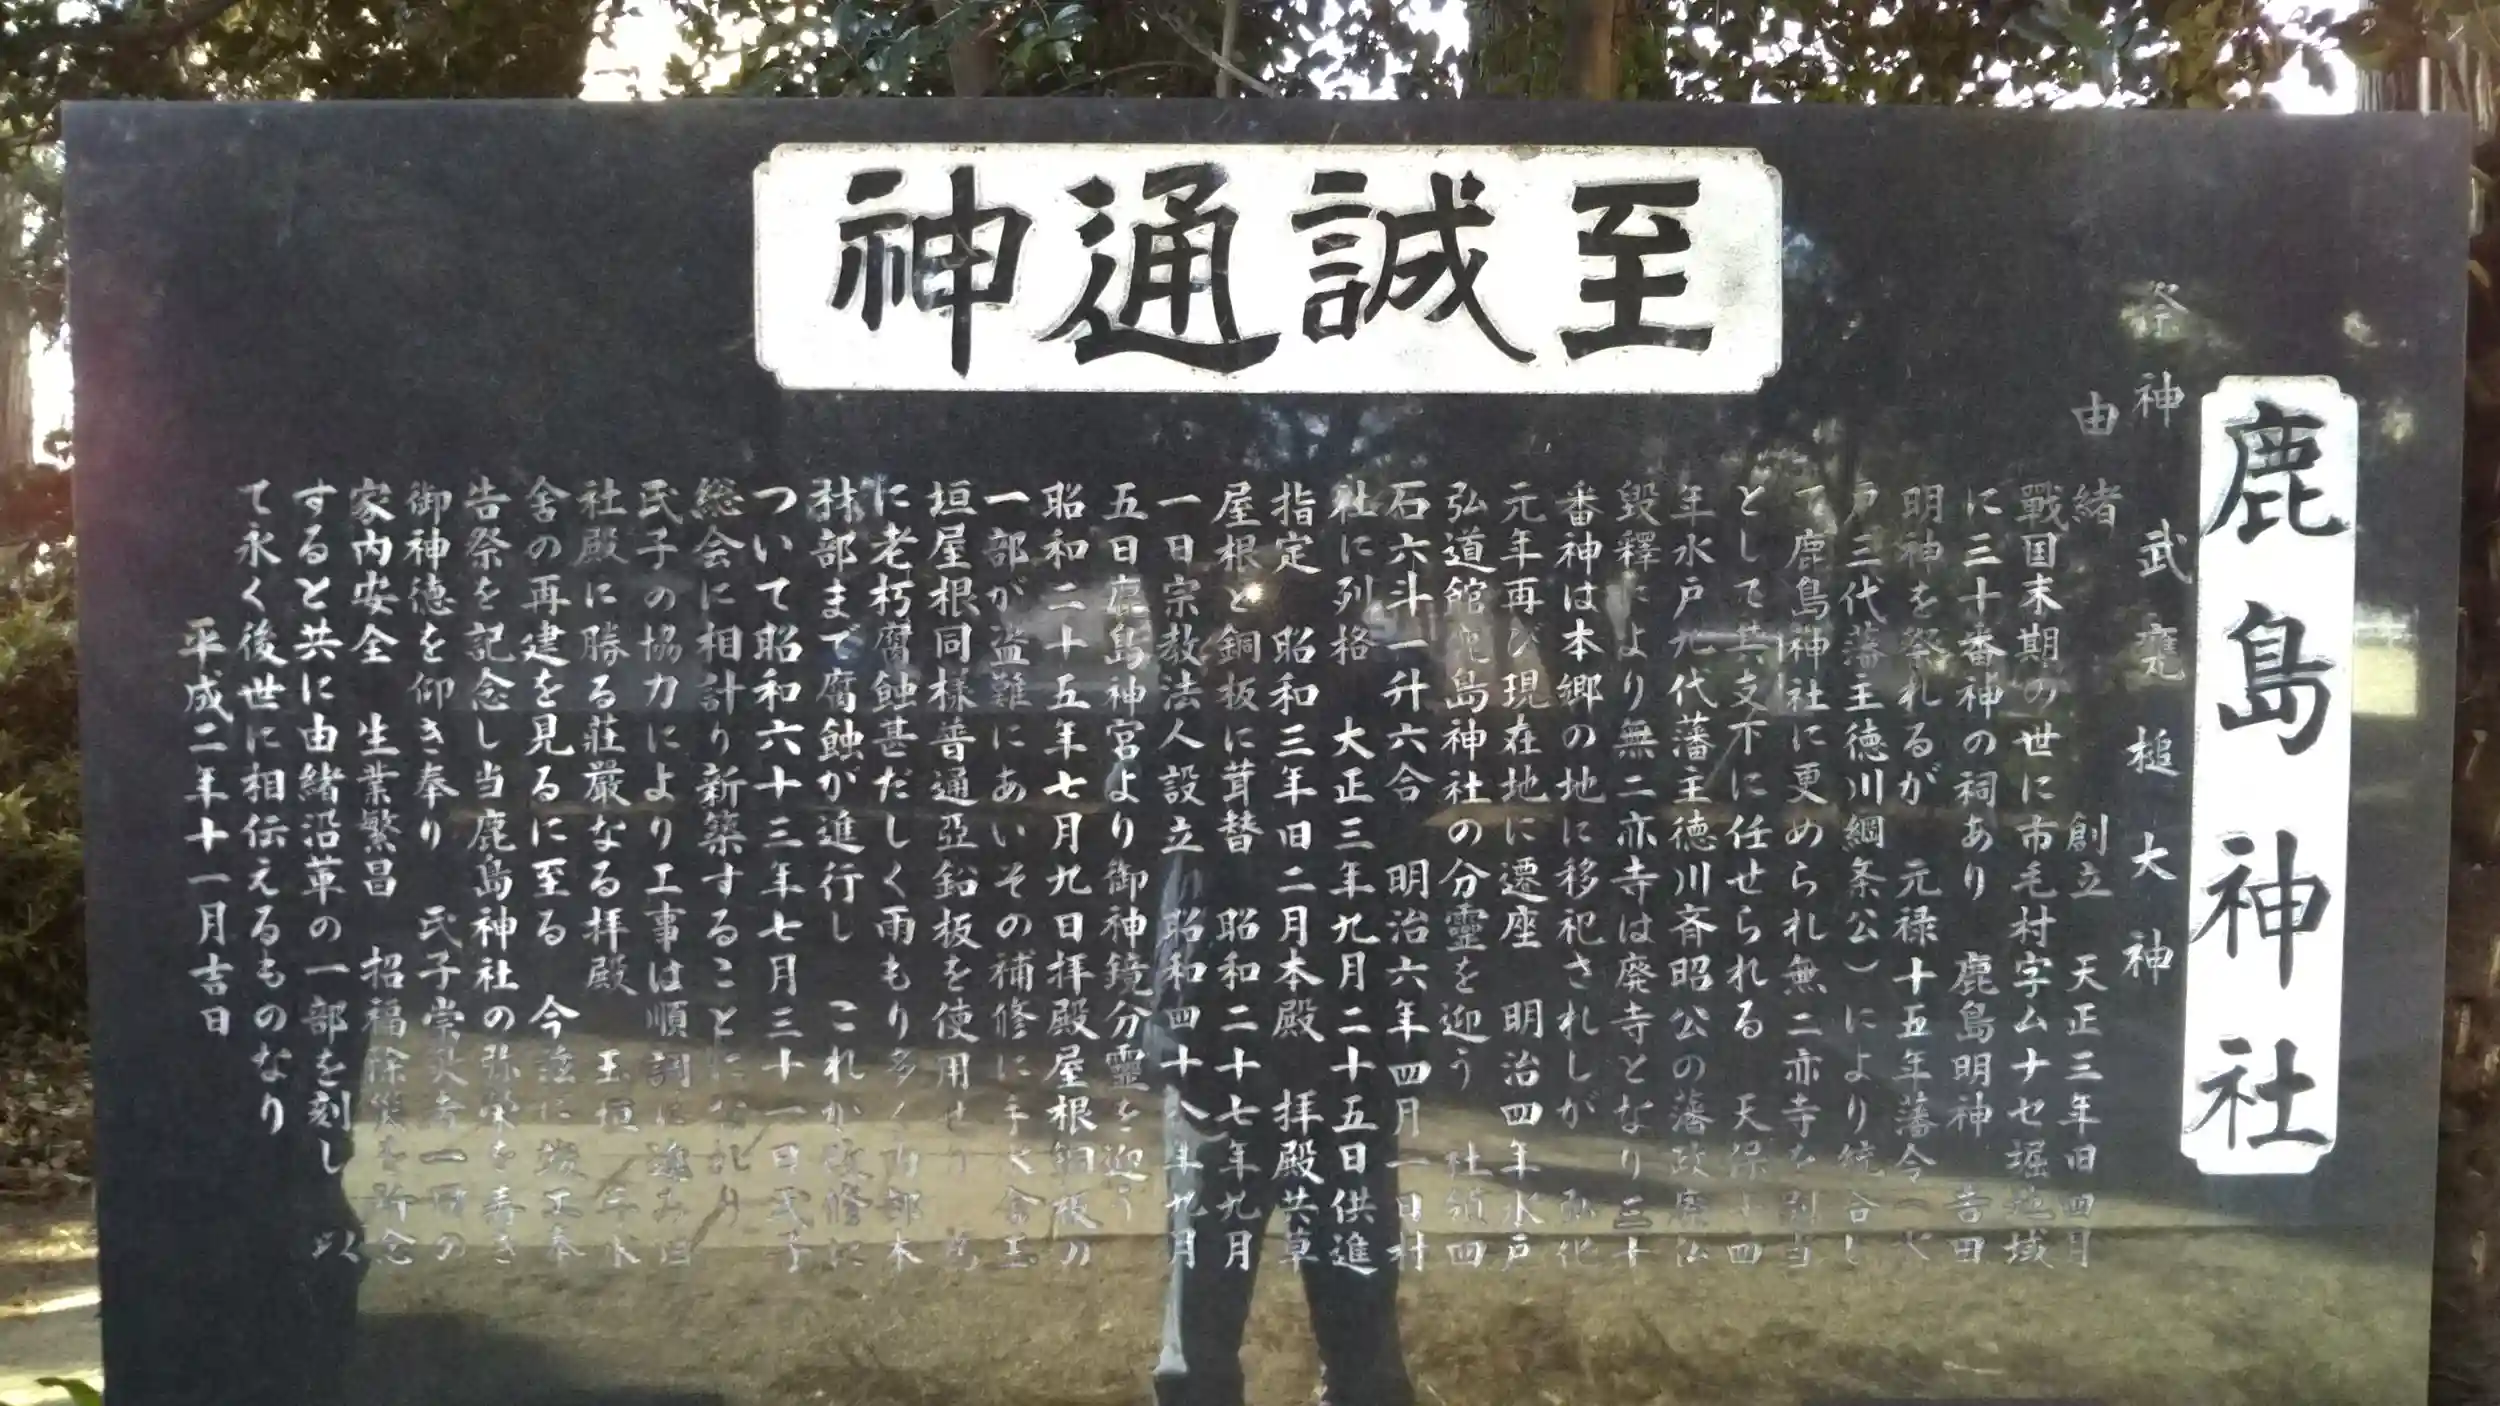 至誠通神
鹿島神社
祭神 武甕槌大神
由緒 創立 天正三年旧四月
戰国末期の世に市毛村字ムナセ堀地域
に三十番神の祠あり 鹿島明神 吉田
明神を祭れるが 元禄十五年藩令(水
戸三代藩主徳川綱條公)により統合し
て鹿島神社に更められ無二亦寺を別当
として其支下に任せられる 天保十四
年水戸九代藩主徳川斉昭公の藩政廃仏
毀釋により無二亦寺は廃寺となり三十
番神は本郷の地に移祀されしが 弘化
元年再び現在地に遷座 明治四年水戸
弘道館鹿島神社の分靈を迎う 社領四
石六斗一升六合 明治六年四月一日村
社に列格 大正三年九月二十五日供進
指定 昭和三年旧二月本殿 拝殿共草
屋根と銅板に葺替 昭和二十七年九月
一日宗教法人設立 昭和四十八年九月
五日鹿島神宮より御神鏡分靈を迎う
昭和二十五年七月九日拝殿屋根銅板の
一部が盗難にあいその補修に手を
垣屋根同様普通亞鉛板を使用せり
に老朽腐蝕甚だしく雨もり多く内部木
材部まで腐蝕が進行し これが改修に
ついて昭和六十三年七月三十一日氏子
総会に相計り新築することになれり
氏子の協力により工事は順調に進み旧
社殿に勝る荘厳なる拝殿 玉垣
舎の再建を見るに至る 今茲に竣工奉
告祭を記念し当鹿島神社の弥栄を寿ぎ
御神徳を仰き奉り 氏子崇敬者一同の
家内安全 生業繁昌 招福除災を祈念
すると共に由緒沿革の一部を刻し 以
て永く後世に相伝えるものなり
平成二年十一月吉日